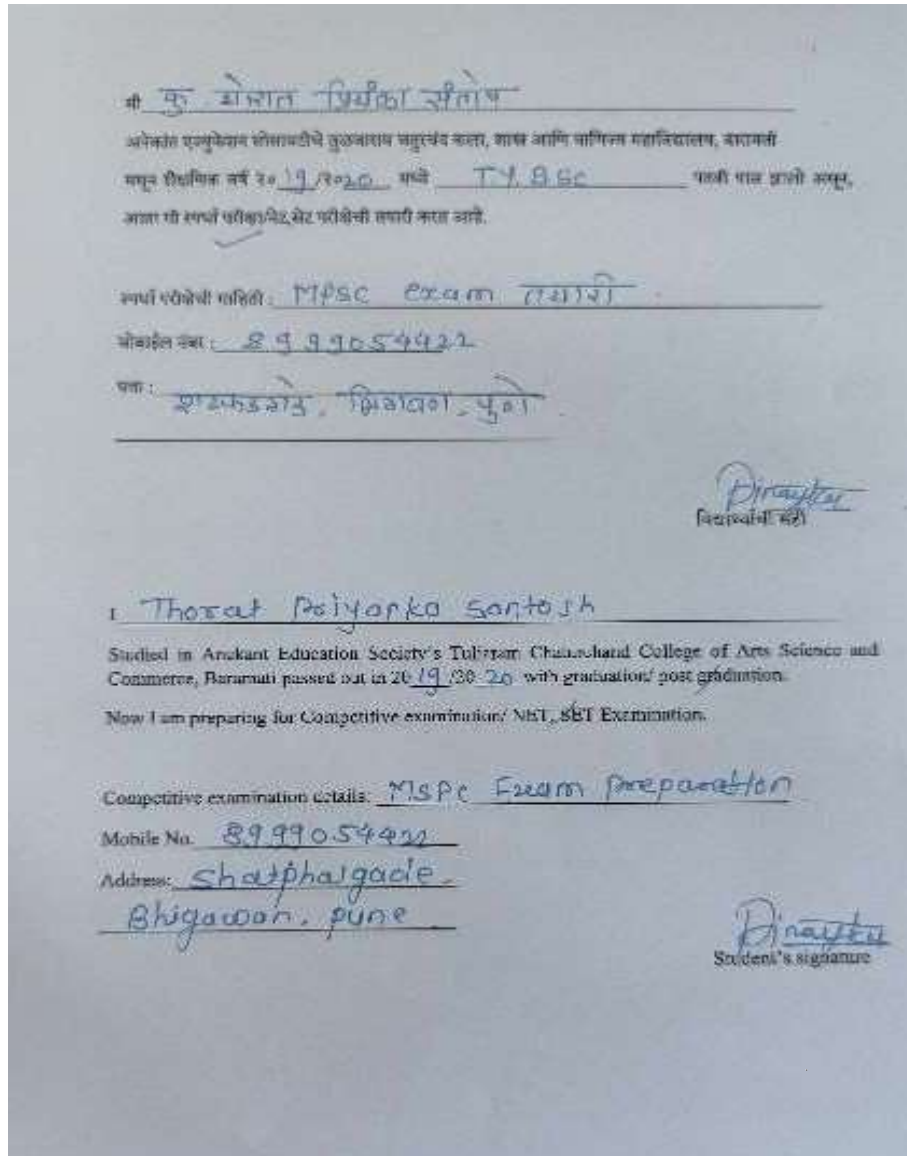 मी कु थोरात प्रियंका संतोष
अनेकांत एज्युकेशन सोसायटीचे तुळजाराम चतुरचंद कला, शास्त्र आणि वाणिज्य महाविद्यालय, बारामती
मधून शैक्षणिक वर्ष २० 19 /२०२० मध्ये T.Y. B Sc पदवी पास झालो असून,
आता मी स्पर्धा परीक्षा/नेट,सेट परीक्षेची तयारी करत आहे.
स्पर्धा परीक्षेची माहिती : MPSC exam तयारी .
मोबाईल नंबर : 8999054422
पत्ता :
भिगवण , पुणे .
विद्यार्थ्याची सही
I Thorat Priyanka Santosh
Studied in Anekant Education Society's Tuljaram Chaturchand College of Arts Science and
Commerce, Baramati passed out in 20 19 /20 20 with graduation/ post graduation.
Now I am preparing for Competitive examination/ NET, SET Examination.
Competitive examination details: MSPC Exam preparation
Mobile No. 8999054422
Address: Shatphalgade .
Bhigawan. pune
Student's signature